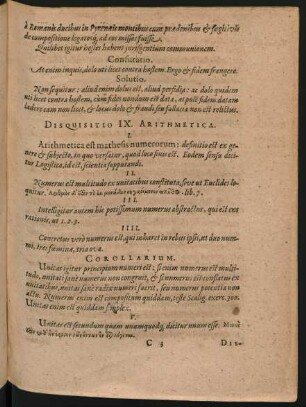 à Romanis ducibus in Pyrenæis montibus cum prædonibus & fugitivis
de compositione legatum, ad eos missos fuisse.
Quilibet igitur hostes habent jus gentium commune.
Confutatio.
At enim inquis, dolo uti licet contra hostem. Ergo & fidem frangere.
Solutio.
Non sequitur: aliud enim dolus est, aliud perfidia: ac dolo quidem
uti licet contra hostem, cum fides nondum est data, at post fidem datam
fallere eum non licet, & locus dolo & fraudi seu fallaciæ non est relictus.
DISQUISITIO IX. ARITHMETICA.
I.
Arithmetica est mathesis numerorum: definitio est ex ge-
nere & subjecto, in quo versatur, quod loco finis est. Eodem sensu dici-
tur Logistica, id est, scientia supputandi.
II.
Numerus est multitudo ex unitatibus constituta, seu ut Euclides lo-
quitur, lib. 7.
III.
Intelligitur autem hic potissimum numerus abstractus, qui est ens
rationis, ut 1. 2. 3.
IIII.
Concretus vero numerus est, qui inhæret in rebus ipsis, ut duo num-
mi, tres fœminæ, tria ova.
COROLLARIUM.
Unitas igitur principium numeri est: siquidem numerus est multi-
tudo, unitati sane numerus non congruit, & si numerus est constatus ex
unitatibus, unitas sane radix numeri fuerit, seu numerus potentia non
actu. Numerus enim est compositum quiddam, teste Scalig. exerc. 300.
Unitas enim est quiddam simplex.
V.
Unitas est secundum quam unumquodq; dicitur unum esse.
C 3 DIS-